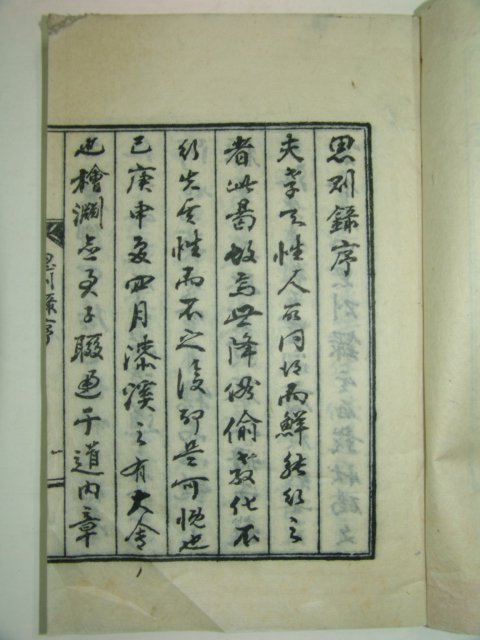 思則錄序
夫孝天性人所同得而鮮能行之
者此曷故焉世降俗偷敎化不
行失其性而不之復耶是可慨也
已庚申夏四月漆溪之有大會
也檜淵君子通于道內章
思則錄序